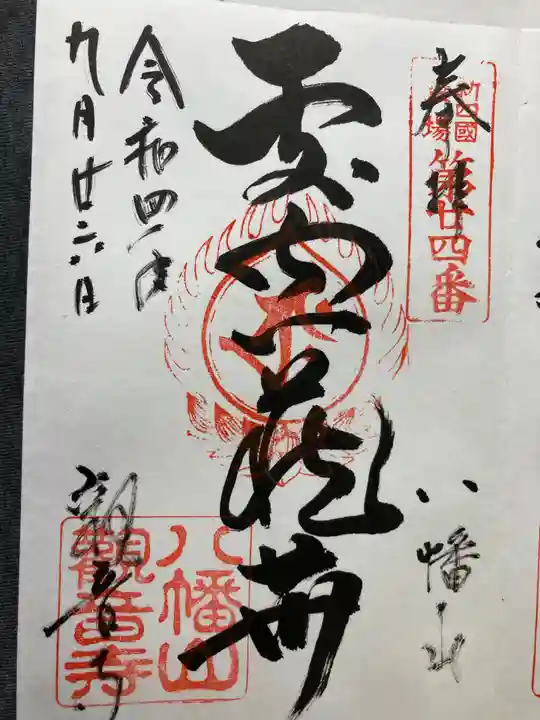 奉拝
新四國
霊場
第廿四番
八幡山
虚空蔵
令和四年
九月廿六日
観音寺
八幡山
觀音寺